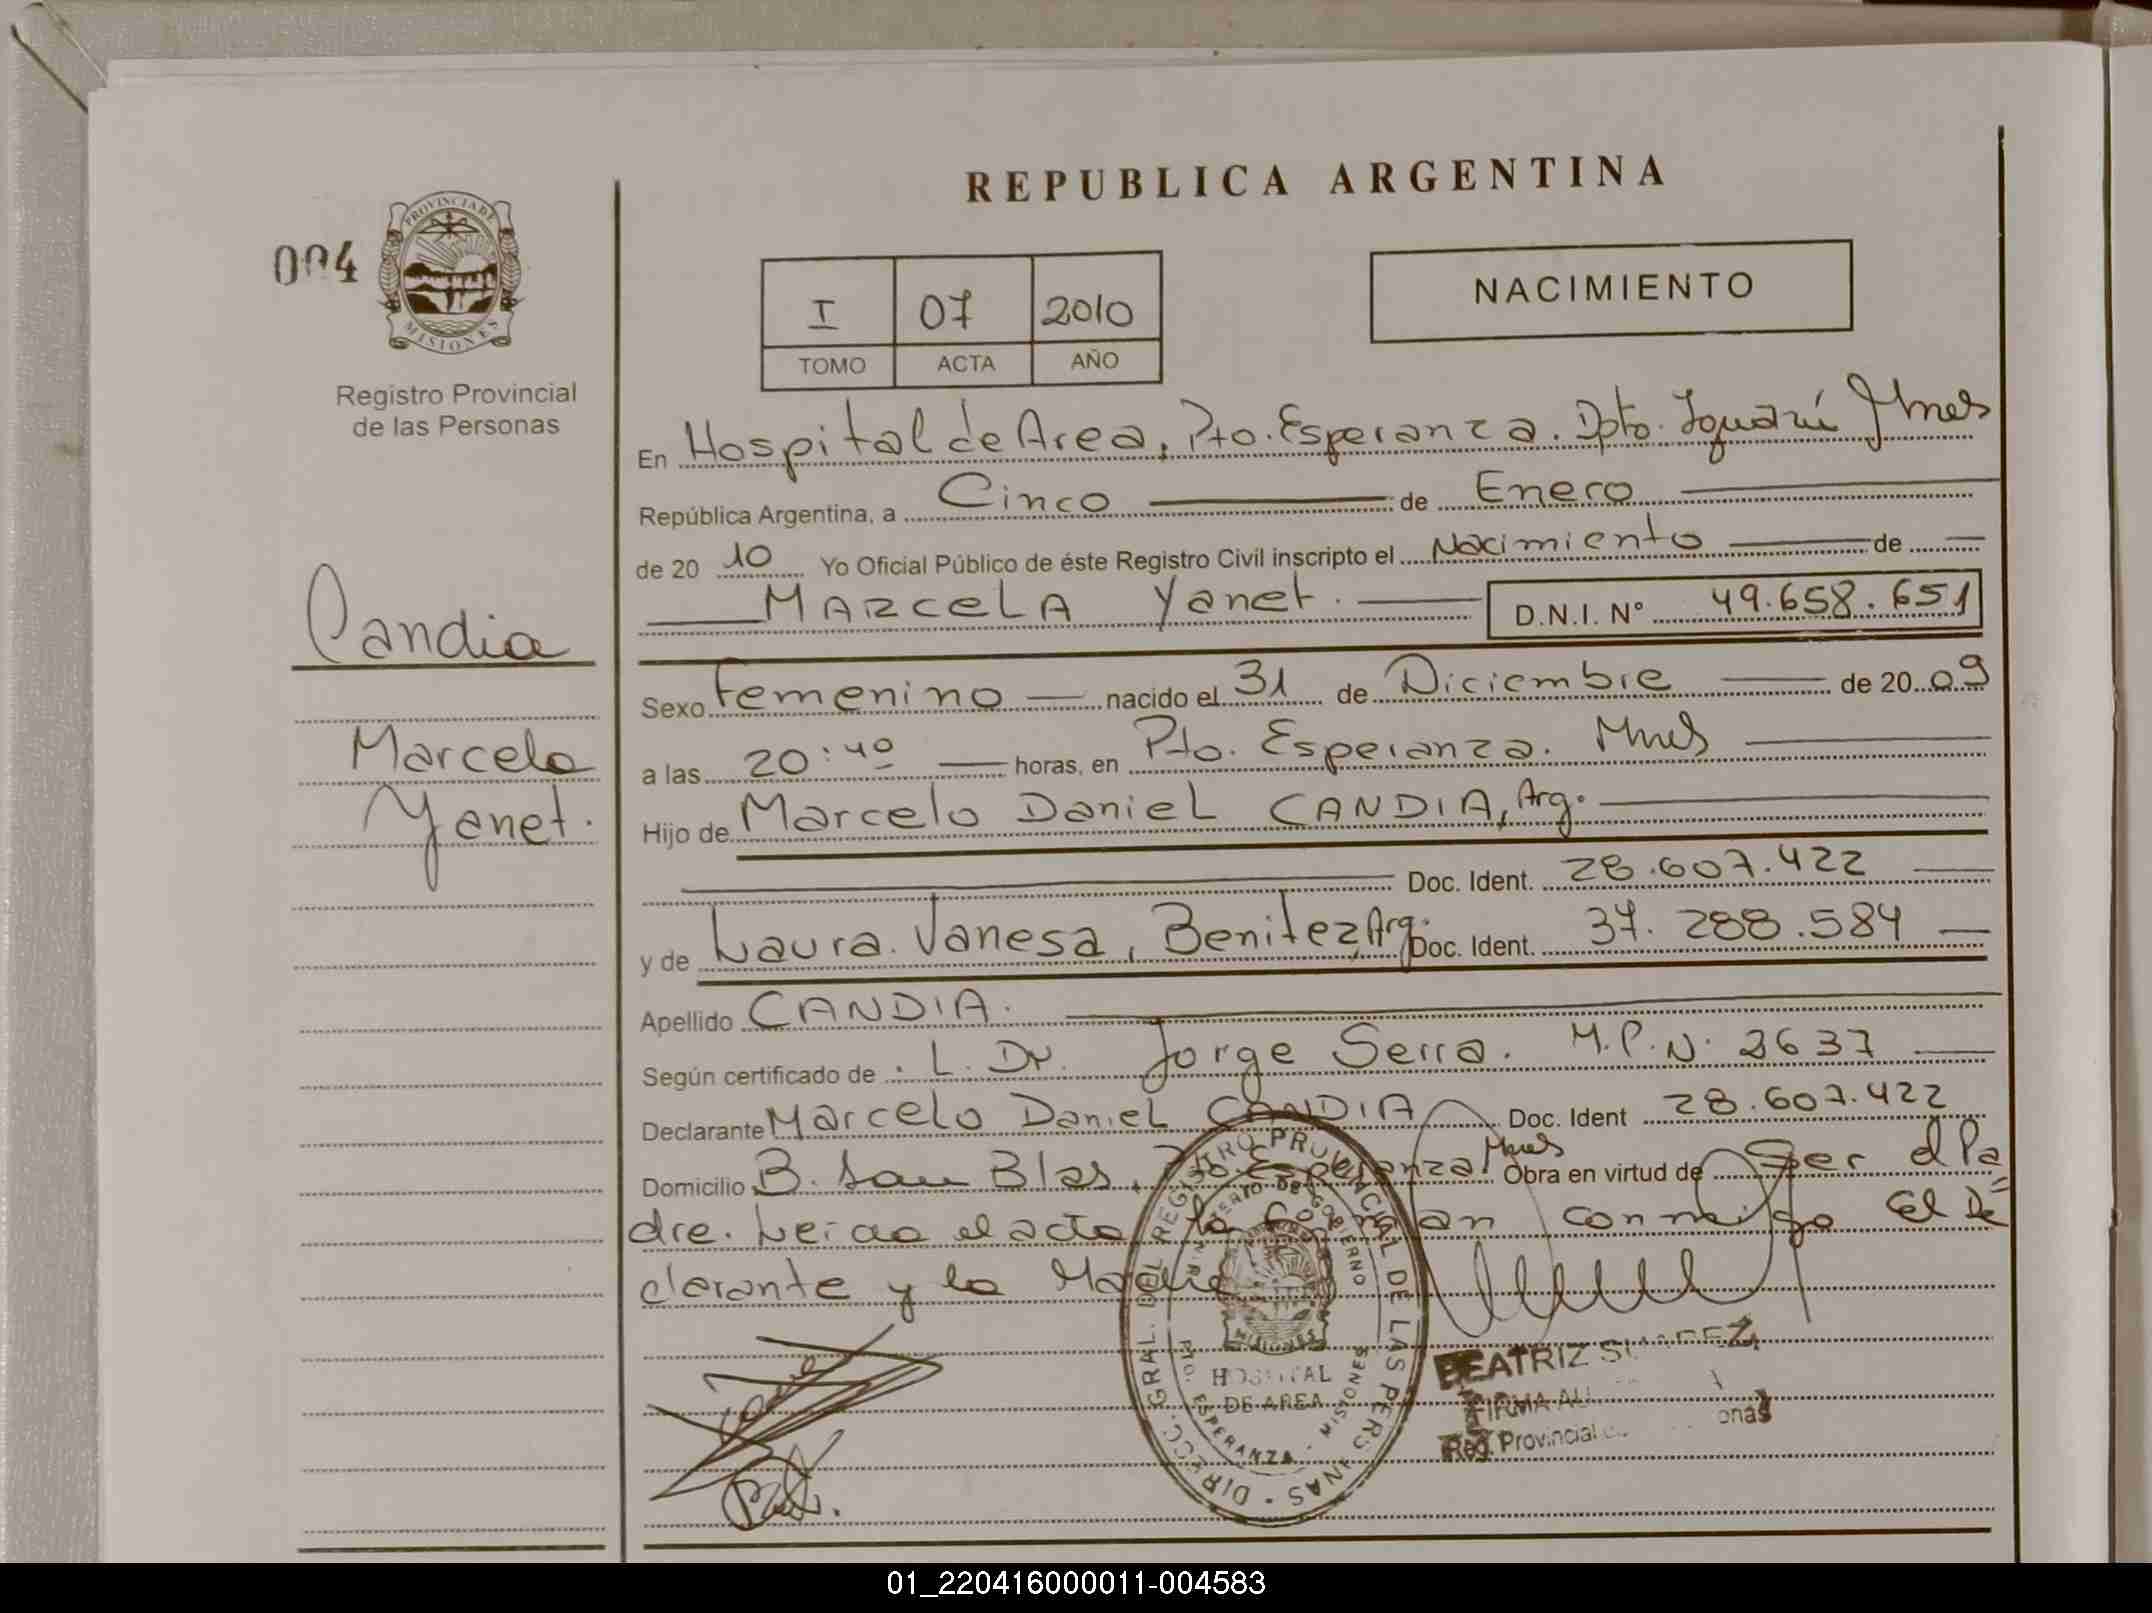 REPUBLICA ARGENTINA
004
PROVINCIA DE MISIONES
Registro Provincial
de las Personas
I 07 2010
TOMO ACTA AÑO
NACIMIENTO
Candia
Marcela
Yanet.
En Hospital de Area, Pto. Esperanza. Dpto. Iguazú Mnes
República Argentina, a Cinco de Enero
de 20 10 Yo Oficial Público de éste Registro Civil inscripto el Nacimiento de
MARCELA Yanet. D.N.I. N° 49.658.651
Sexo Femenino nacido el 31 de Diciembre de 20 09
a las 20:40 horas, en Pto. Esperanza. Mnes
Hijo de Marcelo Daniel CANDIA, Arg.
Doc. Ident. 28.607.422
y de Laura Vanesa, Benitez, Arg. Doc. Ident. 37.288.584
Apellido CANDIA.
Según certificado de . L. Dr. Jorge Serra. M.P.N. 2637
Declarante Marcelo Daniel CANDIA Doc. Ident 28.607.422
Domicilio B. San Blas, Pto. Esperanza Mnes Obra en virtud de Ser el Pa=
dre. Leida el acta la firman conmigo el De
clarante y la Madre
DIRECC. GRAL. DEL REGISTRO PROVINCIAL DE LAS PERSONAS
MINISTERIO DE GOBIERNO
MISIONES
HOSPITAL
DE AREA
PTO. ESPERANZA - MISIONES
BEATRIZ
FIRMA
Reg. Provincial
01_220416000011-004583